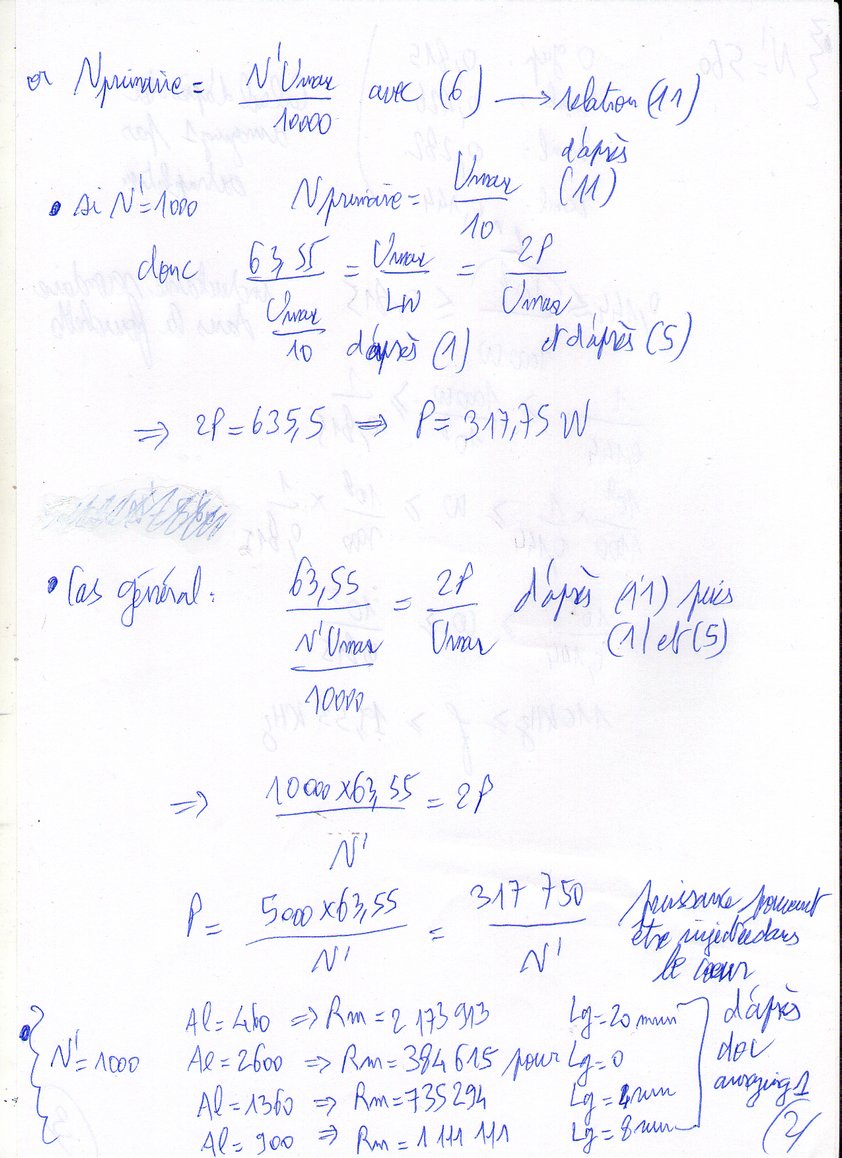 or Nprimaire = N'Umax / 10000 avec (6) → relation (11)
• si N'=1000 Nprimaire = Umax / 10 d'après (11)
donc 63,55 / (Umax / 10) = Umax / LW = 2P / Umax
d'après (1) et d'après (5)
⇒ 2P = 635,5 ⇒ P = 317,75 W
• Cas général : 63,55 / (N'Umax / 10000) = 2P / Umax d'après (11) puis
(1) et (5)
⇒ 10000 x 63,55 / N' = 2P
P = 5000 x 63,55 / N' = 317 750 / N' puissance pouvant
être injectée dans
le cœur
• N'=1000
Al = 460 ⇒ Rm = 2 173 913 Lg = 20 mm
Al = 2600 ⇒ Rm = 384 615 pour Lg = 0
Al = 1360 ⇒ Rm = 735 294 Lg = 4 mm
Al = 900 ⇒ Rm = 1 111 111 Lg = 8 mm
d'après
doc
(2)